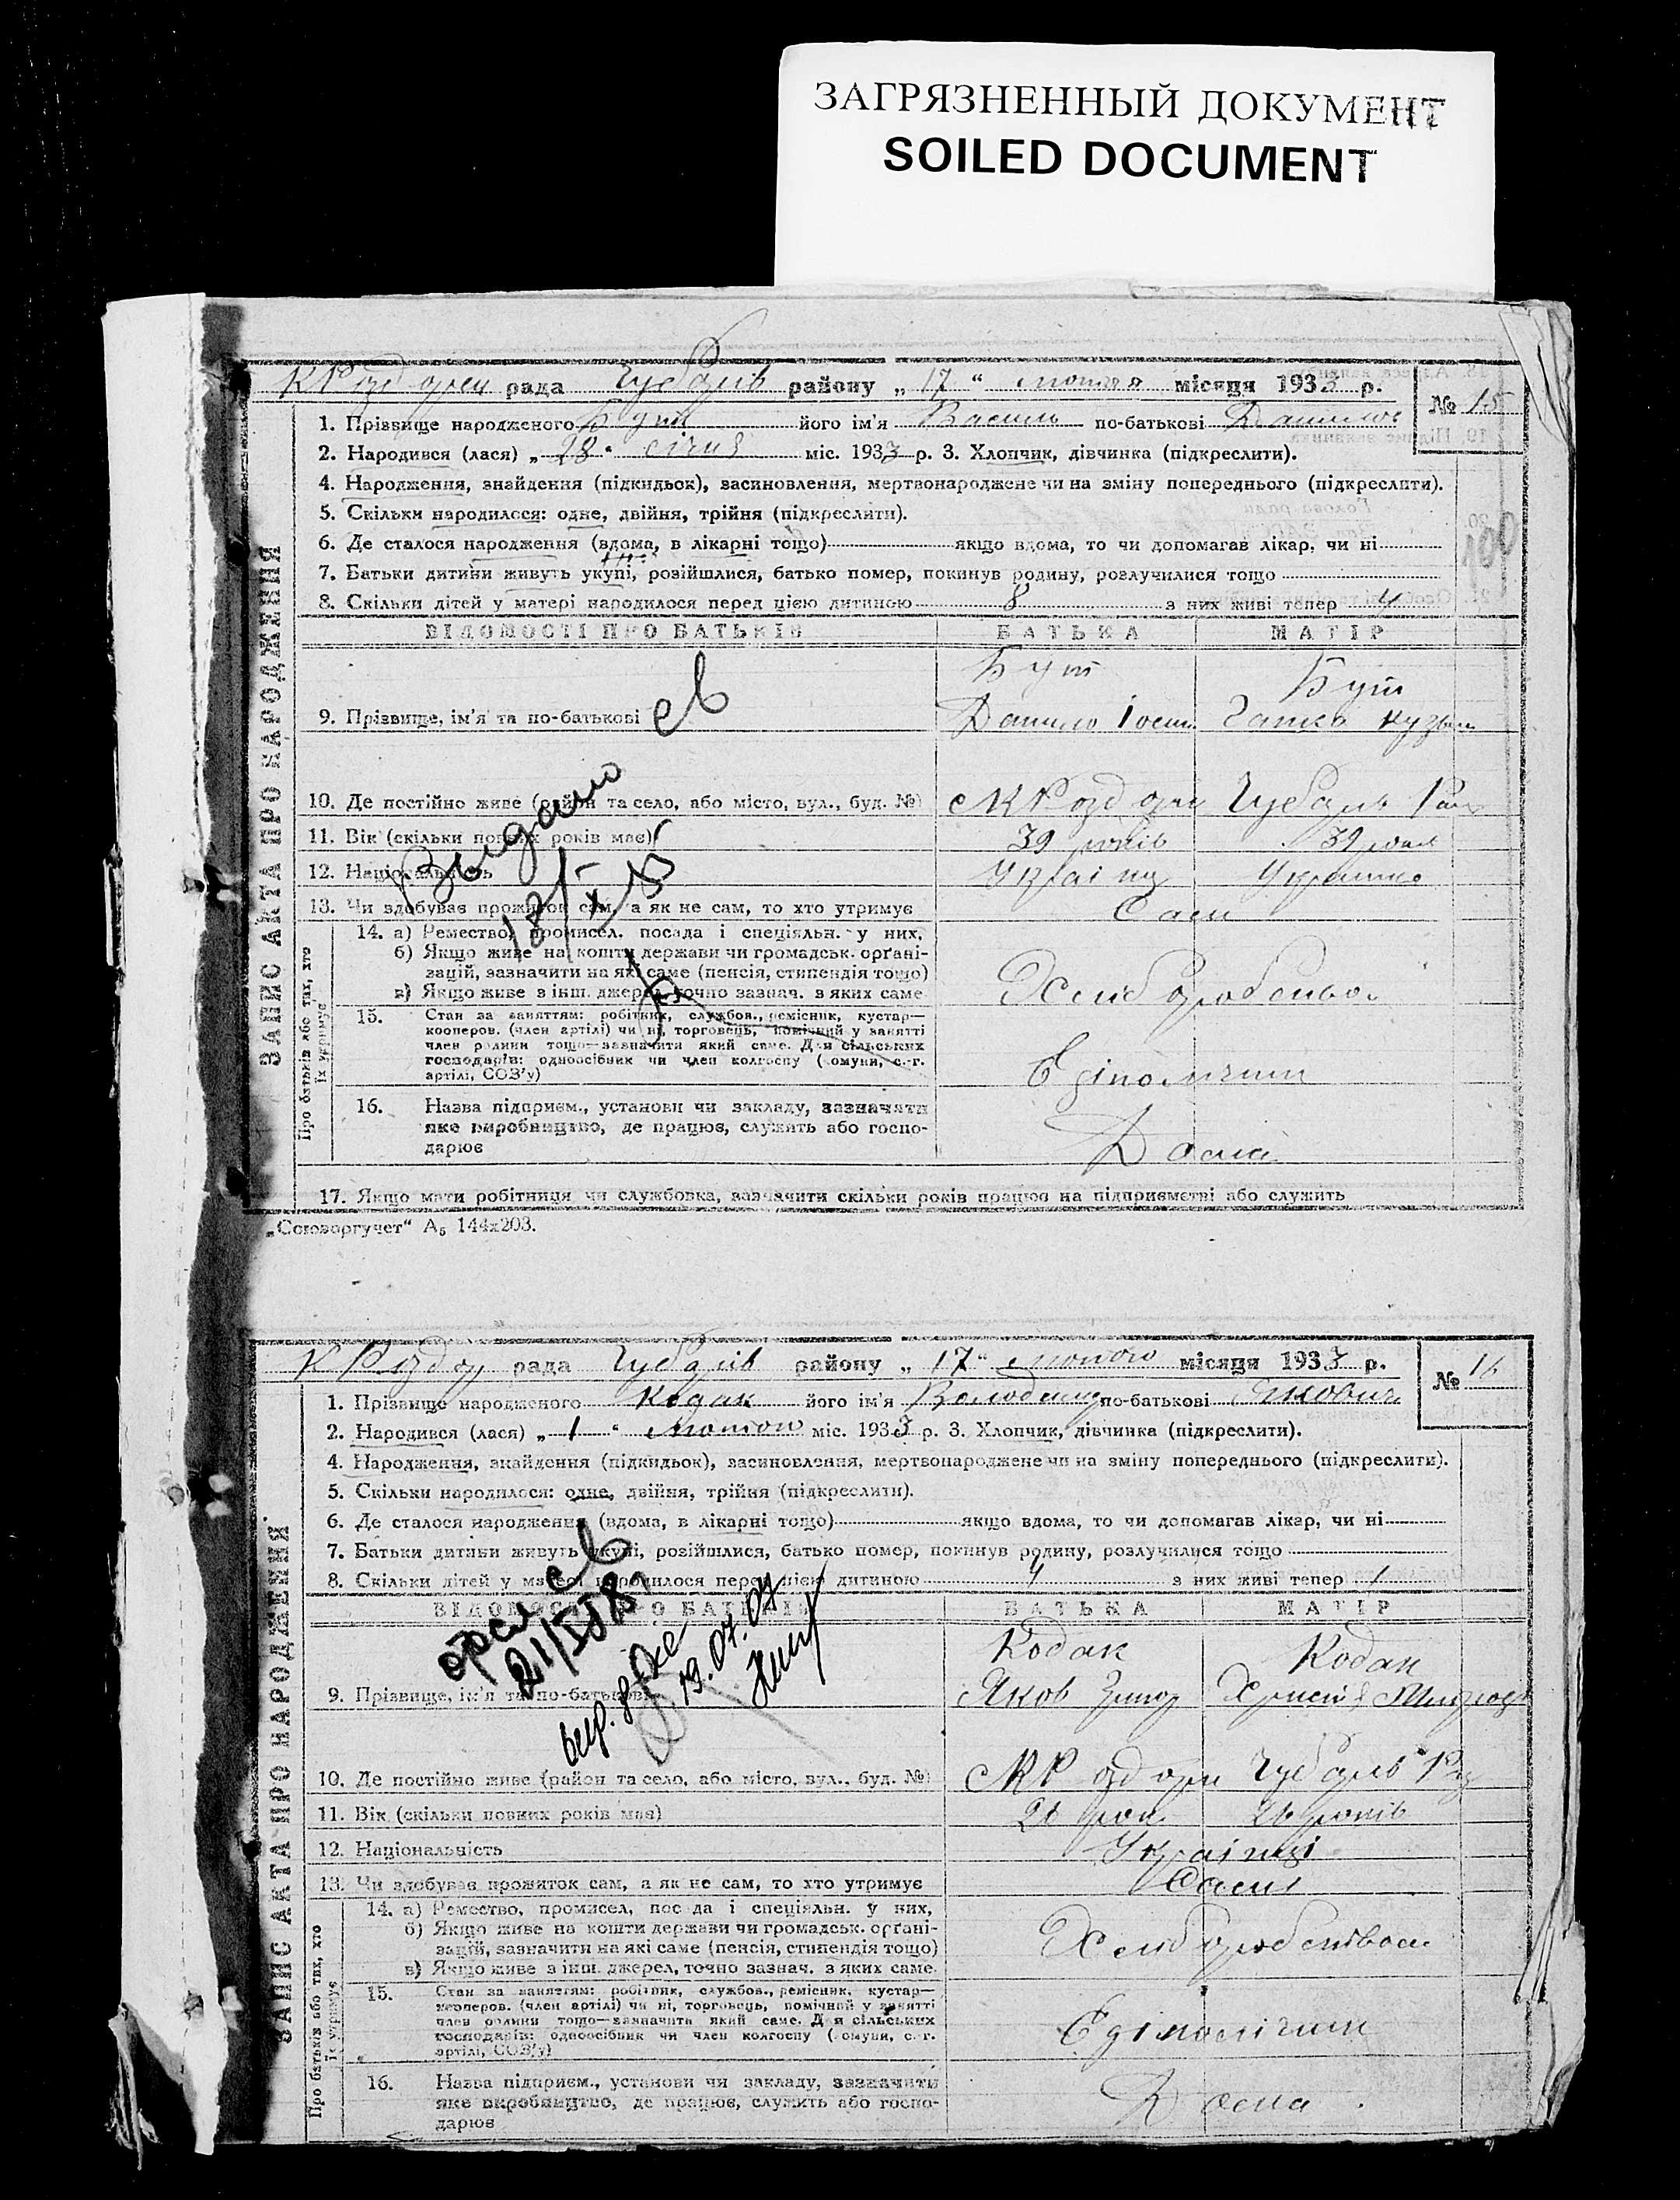 ЗАГРЯЗНЕННЫЙ ДОКУМЕНТ
SOILED DOCUMENT
рада Чубарів району „ 17 “ лютого місяця 1933 р.
№ 15
1. Прізвище народженого Бут його ім'я Василь по-батькові Данилов
2. Народився (лася) „ 28 “ січня міс. 1933 р. 3. Хлопчик, дівчинка (підкреслити).
4. Народження, знайдення (підкидьок), засиновлення, мертвонароджене чи на зміну попереднього (підкреслити).
5. Скільки народилося: одне, двійня, трійня (підкреслити).
6. Де сталося народження (вдома, в лікарні тощо) якщо вдома, то чи допомагав лікар, чи ні
7. Батьки дитини живуть укупі, розійшлися, батько помер, покинув родину, розлучилися тощо
8. Скільки дітей у матері народилося перед цією дитиною 8 з них живі тепер 4
ВІДОМОСТІ ПРО БАТЬКІВ БАТЬКА МАТІР
Бут Бут
9. Прізвище, ім'я та по-батькові Данило
10. Де постійно живе (район та село, або місто, вул., буд. №)
11. Вік (скільки повних років має) 39 років 39 рок
12. Національність Українц
13. Чи здобуває прожиток сам, а як не сам, то хто утримує Сами
14. а) Ремество, промисел, посада і спеціяльн. у них,
б) Якщо живе на кошти держави чи громадськ. органі-
зацій, зазначити на які саме (пенсія, стипендія тощо)
в) Якщо живе з інш. джерел, точно зазнач. з яких саме
15. Стан за заняттям: робітник, службов., ремісник, кустар—
кооперов. (член артілі) чи ні, торговець, помічний у занятті
член родини тощо—зазначити який саме. Для сільських
господарів: одноосібник чи член колгоспу (комуни, с.-г.
артілі, СОЗ'у)
16. Назва підприєм., установи чи закладу, зазначити
яке виробництво, де працює, служить або госпо-
дарює
17. Якщо мати робітниця чи службовка, зазначити скільки років працює на підприємстві або служить
„Союзоргучет“ А5 144x203.
ЗАПИС АКТА ПРО НАРОДЖЕННЯ
Про батьків або тих, хто
їх утримує
Выдано
рада Чубарів району „ 17 “ лютого місяця 1933 р.
№ 16
1. Прізвище народженого Кодак його ім'я Володимир по-батькові Якович
2. Народився (лася) „ 1 “ лютого міс. 1933 р. 3. Хлопчик, дівчинка (підкреслити).
4. Народження, знайдення (підкидьок), засиновлення, мертвонароджене чи на зміну попереднього (підкреслити).
5. Скільки народилося: одне, двійня, трійня (підкреслити).
6. Де сталося народження (вдома, в лікарні тощо) якщо вдома, то чи допомагав лікар, чи ні
7. Батьки дитини живуть укупі, розійшлися, батько помер, покинув родину, розлучилися тощо
8. Скільки дітей у матері народилося перед цією дитиною 4 з них живі тепер 1
ВІДОМОСТІ ПРО БАТЬКІВ БАТЬКА МАТІР
Кодак Кодак
9. Прізвище, ім'я та по-батькові Яков
19.07.07
10. Де постійно живе (район та село, або місто, вул., буд. №)
11. Вік (скільки повних років має) 26 років
12. Національність Українці
13. Чи здобуває прожиток сам, а як не сам, то хто утримує Сами
14. а) Ремество, промисел, посада і спеціяльн. у них,
б) Якщо живе на кошти держави чи громадськ. органі-
зацій, зазначити на які саме (пенсія, стипендія тощо)
в) Якщо живе з інш. джерел, точно зазнач. з яких саме
15. Стан за заняттям: робітник, службов., ремісник, кустар—
кооперов. (член артілі) чи ні, торговець, помічний у занятті
член родини тощо—зазначити який саме. Для сільських
господарів: одноосібник чи член колгоспу (комуни, с.-г.
артілі, СОЗ'у)
16. Назва підприєм., установи чи закладу, зазначити
яке виробництво, де працює, служить або госпо-
дарює
ЗАПИС АКТА ПРО НАРОДЖЕННЯ
Про батьків або тих, хто
їх утримує